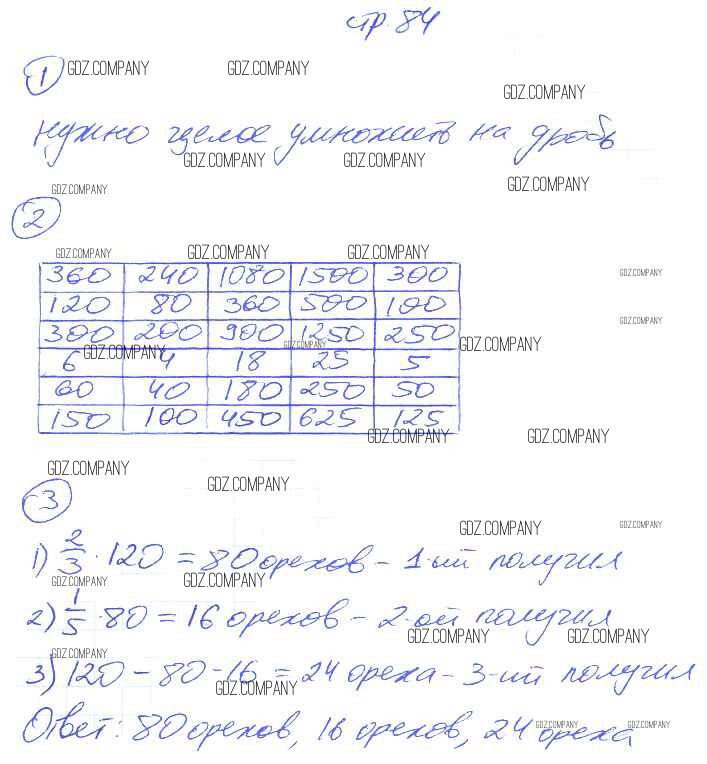 стр. 84
1 GDZ.COMPANY GDZ.COMPANY
GDZ.COMPANY
нужно целое умножить на дробь
GDZ.COMPANY GDZ.COMPANY
GDZ.COMPANY GDZ.COMPANY
2
GDZ.COMPANY GDZ.COMPANY GDZ.COMPANY
360 240 1080 1500 300 GDZ.COMPANY
120 80 360 500 100
GDZ.COMPANY
300 200 900 1250 250
GDZ.COMPANY GDZ.COMPANY GDZ.COMPANY
6 4 18 25 5
60 40 180 250 50
150 100 450 625 125
GDZ.COMPANY GDZ.COMPANY
GDZ.COMPANY
GDZ.COMPANY
3
GDZ.COMPANY GDZ.COMPANY
1) 2/3 · 120 = 80 орехов - 1-ый получил
GDZ.COMPANY GDZ.COMPANY
2) 1/5 · 80 = 16 орехов - 2-ой получил
GDZ.COMPANY GDZ.COMPANY
GDZ.COMPANY
3) 120 - 80 - 16 = 24 ореха - 3-ий получил
GDZ.COMPANY
Ответ: 80 орехов, 16 орехов, 24 ореха
GDZ.COMPANY GDZ.COMPANY